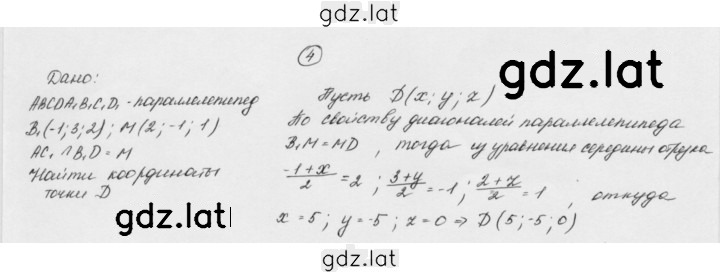 gdz.lat
④
gdz.lat
Дано:
ABCDA₁B₁C₁D₁ - параллелепипед
B₁(-1; 3; 2); M(2; -1; 1)
AC₁ ∩ B₁D = M
Найти координаты
точки D
Пусть D(x; y; z)
По свойству диагоналей параллелепипеда
B₁M = MD, тогда из уравнения середины отрезка
(-1+x)/2 = 2; (3+y)/2 = -1; (2+z)/2 = 1, откуда
x = 5; y = -5; z = 0 ⇒ D(5; -5; 0)
gdz.lat
gdz.lat